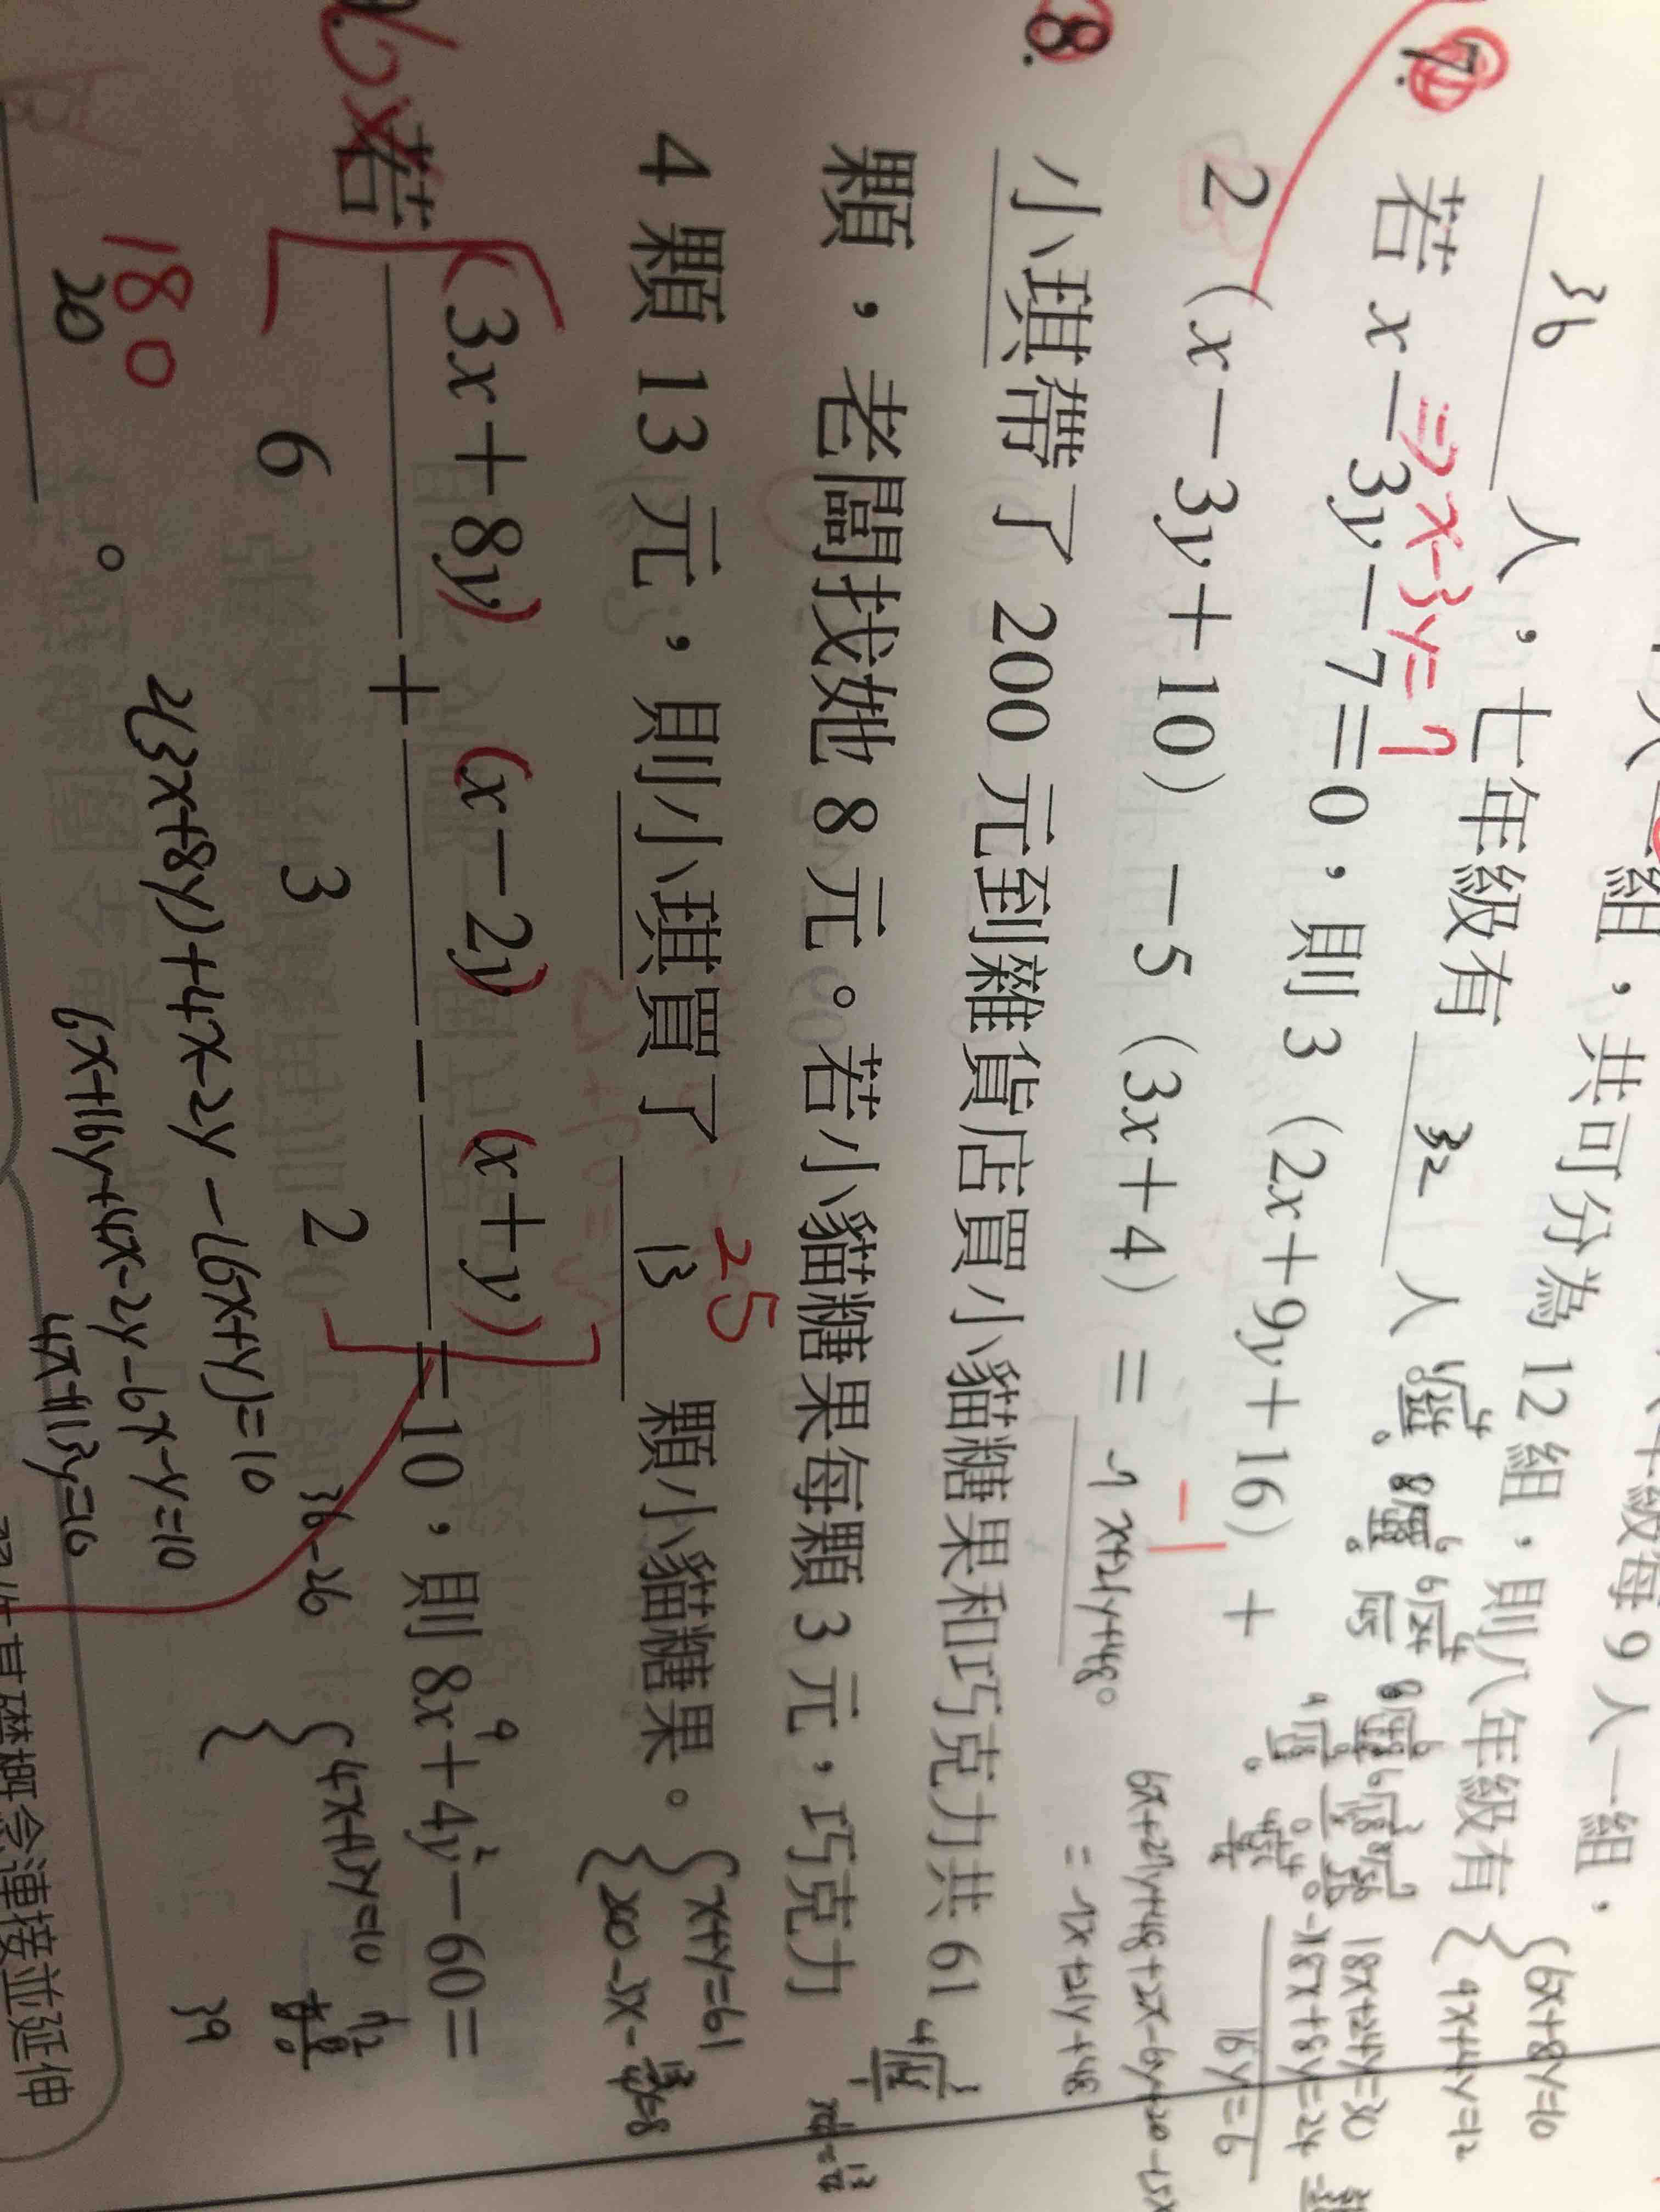 組，共可分為 12 組，則八年級有
36 人，七年級有 32 人。
⇒x-3y=7
7. 若 x－3y－7＝0，則 3（2x＋9y＋16）＋
2（x－3y＋10）－5（3x＋4）＝ -7x+21y+48。
-1
6x+27y+48+2x-6y+20-15x
=-7x+21y+48
8. 小琪帶了 200 元到雜貨店買小貓糖果和巧克力共 61
顆，老闆找她 8 元。若小貓糖果每顆 3 元，巧克力
4 顆 13 元，則小琪買了 13 顆小貓糖果。
25
x+y=61
若 (3x＋8y)/6＋(x－2y)/3－(x＋y)/2＝10，則 8x＋4y－60＝
20。
180
2(3x+8y)+4x-2y-(6x+y)=10
6x+16y+4x-2y-6x-y=10
4x+13y=10
36-26
4x+13y=10
39
6x+8y=10
9x+4y=12
18x+24y=30
-18x+8y=24
16y=6